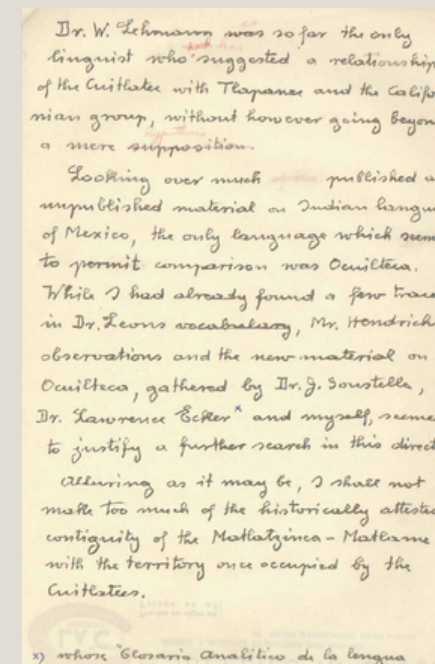 Dr. W. Lehmann was so far the only
linguist who suggested a relationship
of the Cuitlatec with Tlapanec and the Califo
nian group, without however going beyon
hypothesis
a mere supposition.
Looking over much published a
unpublished material on Indian langu
of Mexico, the only language which seem
to permit comparison was Ocuilteca.
While I had already found a few trac
in Dr. Leons vocabulary, Mr. Hendrich
observations and the new material on
Ocuilteca, gathered by Dr. J. Soustelle,
Dr. Lawrence Ecker x and myself, seeme
to justify a further search in this direct
Alluring as it may be, I shall not
make too much of the historically atteste
contiguity of the Matlatzinca - Matlame
with the territory once occupied by the
Cuitlatecs.
x) whose Glosario Analitico de la lengua